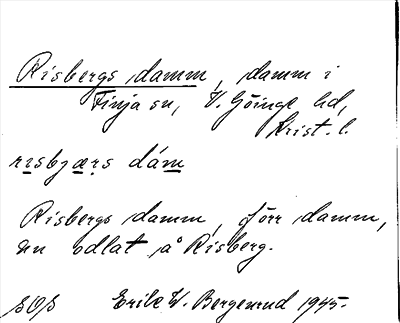 Risbergs damm, damm i
Finja sn, V. Göinge hd,
Krist. l.
rısbjæṛs dám
Risbergs damm, förr damm,
nu odlat på Risberg.
Erik W. Bergenrud 1945.